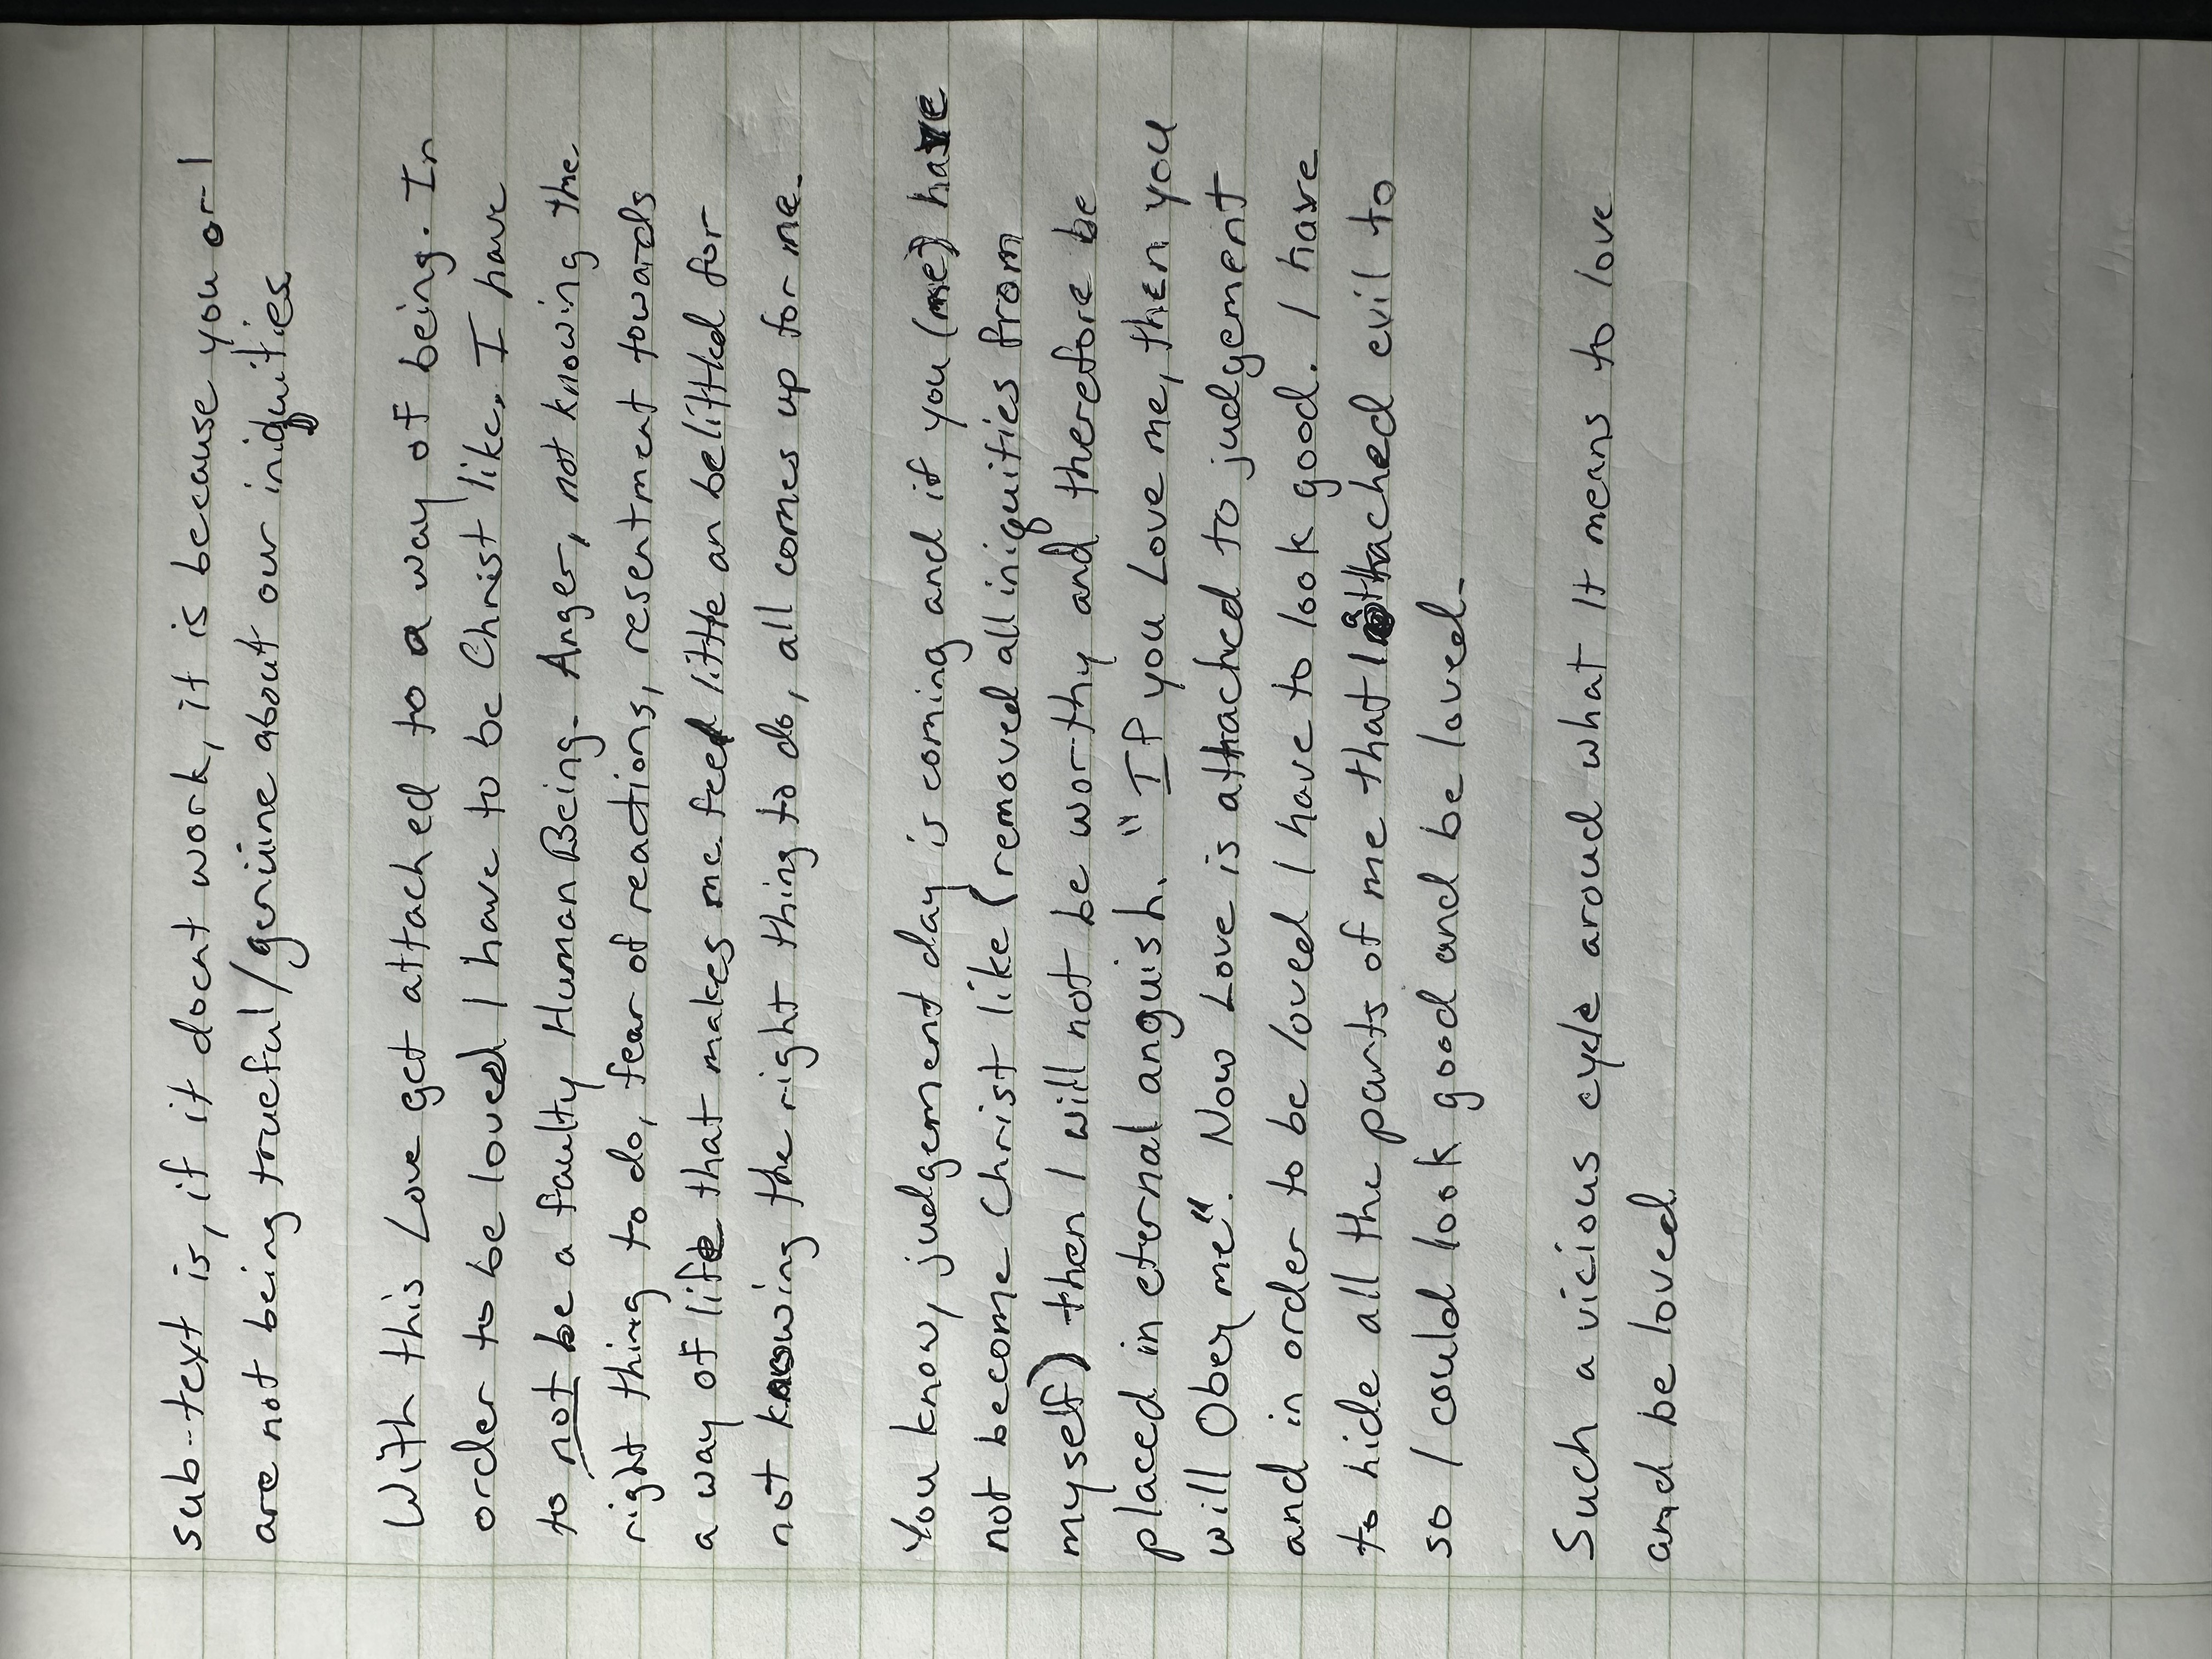 sub-text is, if it docnt work, it is because you or I
are not being trueful/genuine about our iniquities
With this Love get attached to a way of being. In
order to be loved I have to be Christ like. I have
to not be a faulty Human Being. Anger, not knowing the
right thing to do, fear of reactions, resentment towards
a way of life that makes me feel little an belittled for
not knowing the right thing to do, all comes up for me.
You know, judgement day is coming and if you (me) have
not become Christ like (removed all iniquities from
myself) then I will not be worthy and therefore be
placed in eternal anguish. "IF you Love me, then you
will Obey me". Now Love is attached to judgement
and in order to be loved I have to look good. I have
to hide all the parts of me that I attached evil to
so I could look good and be loved.
Such a vicious cycle aroud what It means to love
and be loved.